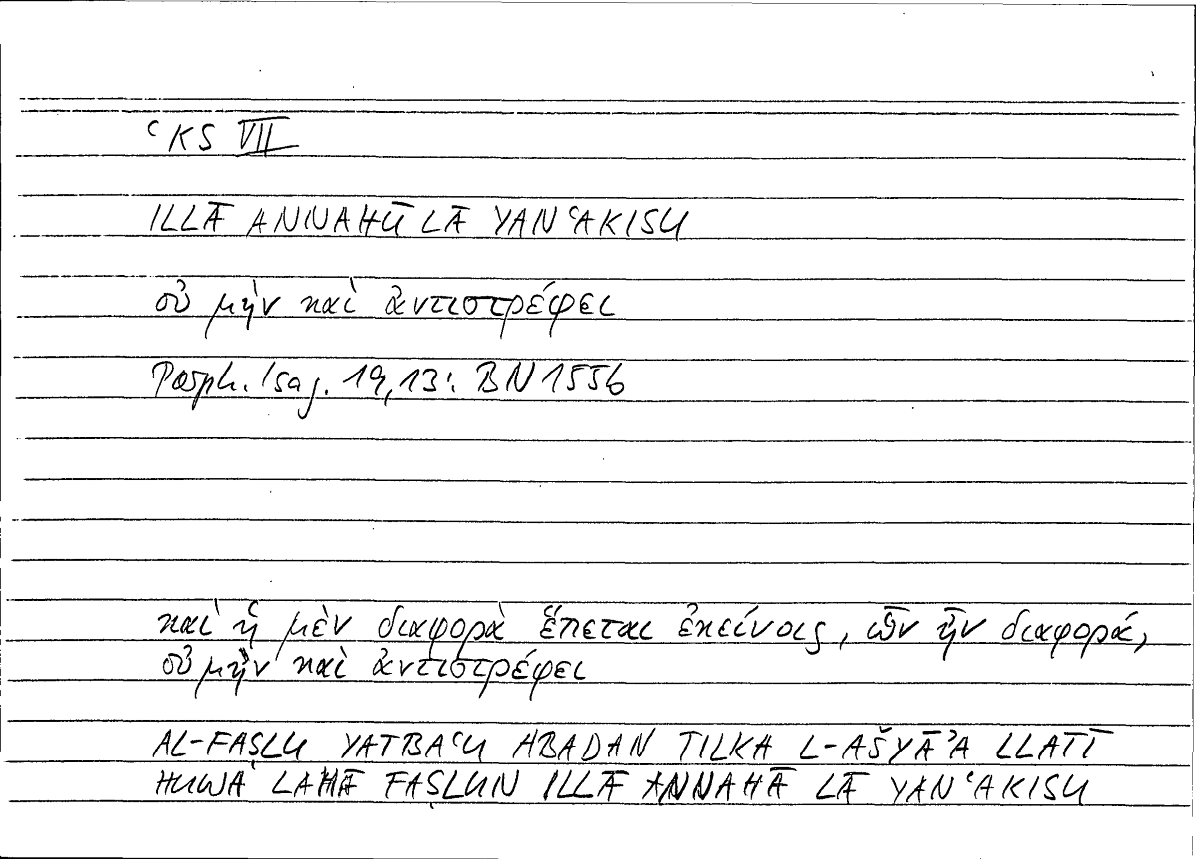 ʿKS VII
ILLĀ ANNAHŪ LĀ YANʿAKISU
οὐ μὴν καὶ ἀντιστρέφει
Porph. Isag. 19,13: BN 155b
καὶ ἡ μὲν διαφορὰ ἕπεται ἐκείνοις, ὧν ἦν διαφορά,
οὐ μὴν καὶ ἀντιστρέφει
AL-FAṢLU YATBAʿU ABADAN TILKA L-AŠYĀʾA LLATĪ
HUWA LAHĀ FAṢLUN ILLĀ ANNAHĀ LĀ YANʿAKISU